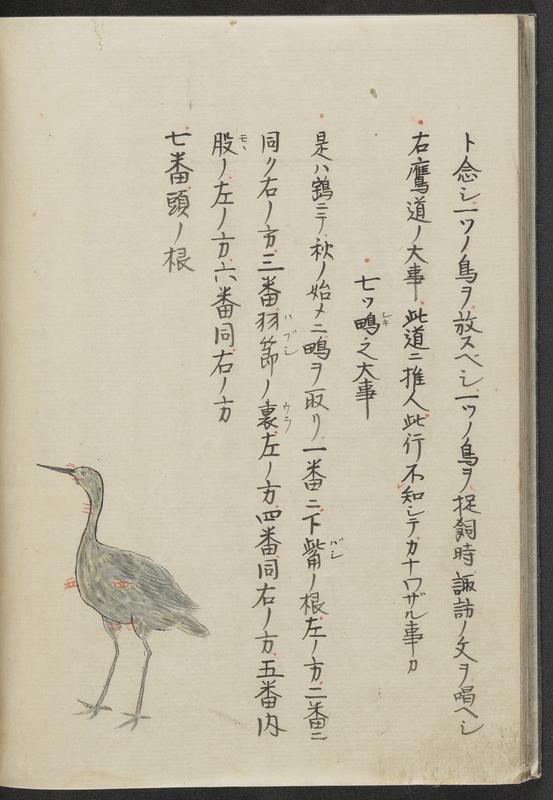 ト念シ一ツノ鳥ヲ放スベシ一ツノ鳥ヲ捉飼時諏訪ノ文ヲ唱ヘシ
右鷹道ノ大事此道ニ推人此行不知シテカナワザル事カ
七ツ鴫之大事
シキ
是ハ鶉ニテ秋ノ始メニ鴫ヲ取リ一番ニ下觜ノ根左ノ方二番ニ
バシ
同ク右ノ方三番羽節ノ裏左ノ方四番同右ノ方五番内
ハブシ
ウラ
股ノ左ノ方六番同右ノ方
モヽ
七番頭ノ根